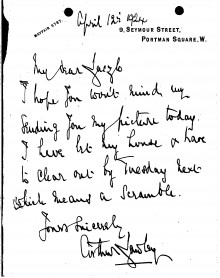 MAYFAIR 5767.
April 12th 1924
9, SEYMOUR STREET,
PORTMAN SQUARE, W.
My dear Laszlo
I hope you won't mind my
sending you my picture today.
I have let my house & have
to clear out by Tuesday next
which means a scramble.
Yours sincerely
Arthur Lawley